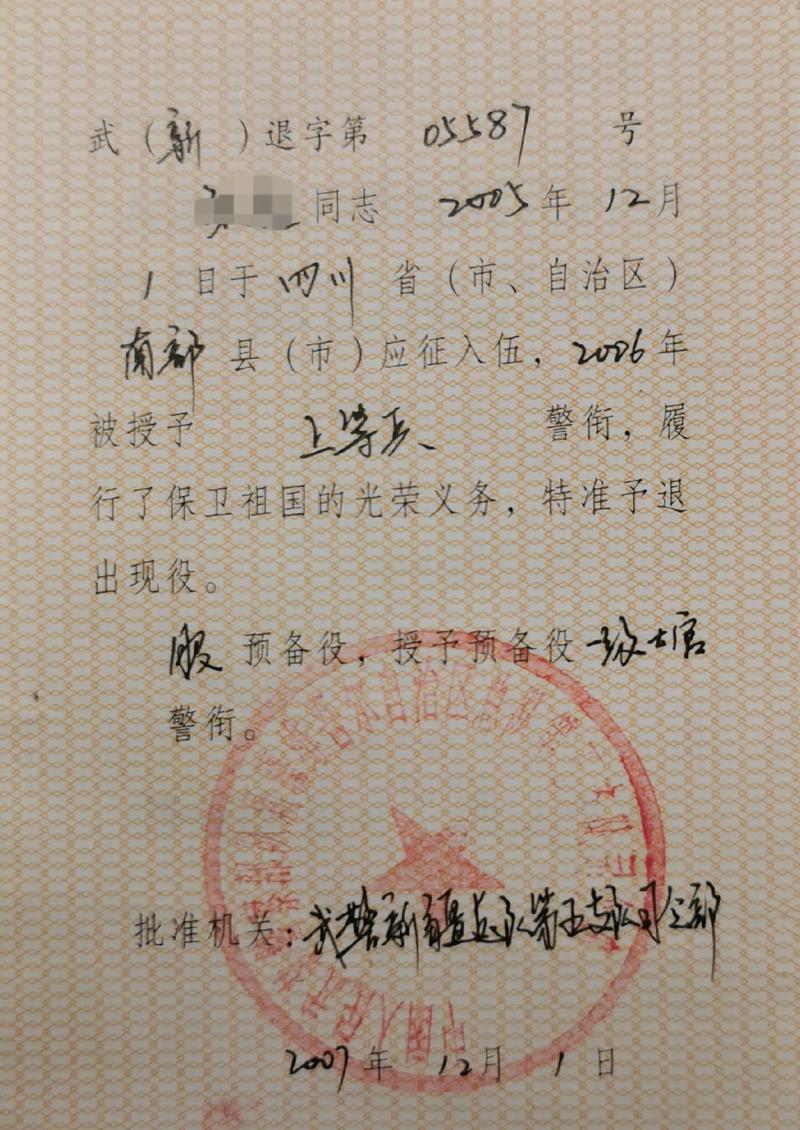 武（新）退字第 05587 号
同志 2005年 12月
1 日于 四川 省（市、自治区）
南部 县（市）应征入伍，2006年
被授予 上等兵 警衔，履
行了保卫祖国的光荣义务，特准予退
出现役。
服 预备役，授予预备役 一级士官
警衔。
批准机关：武警新疆总队第五支队司令部
2007年 12月 1日